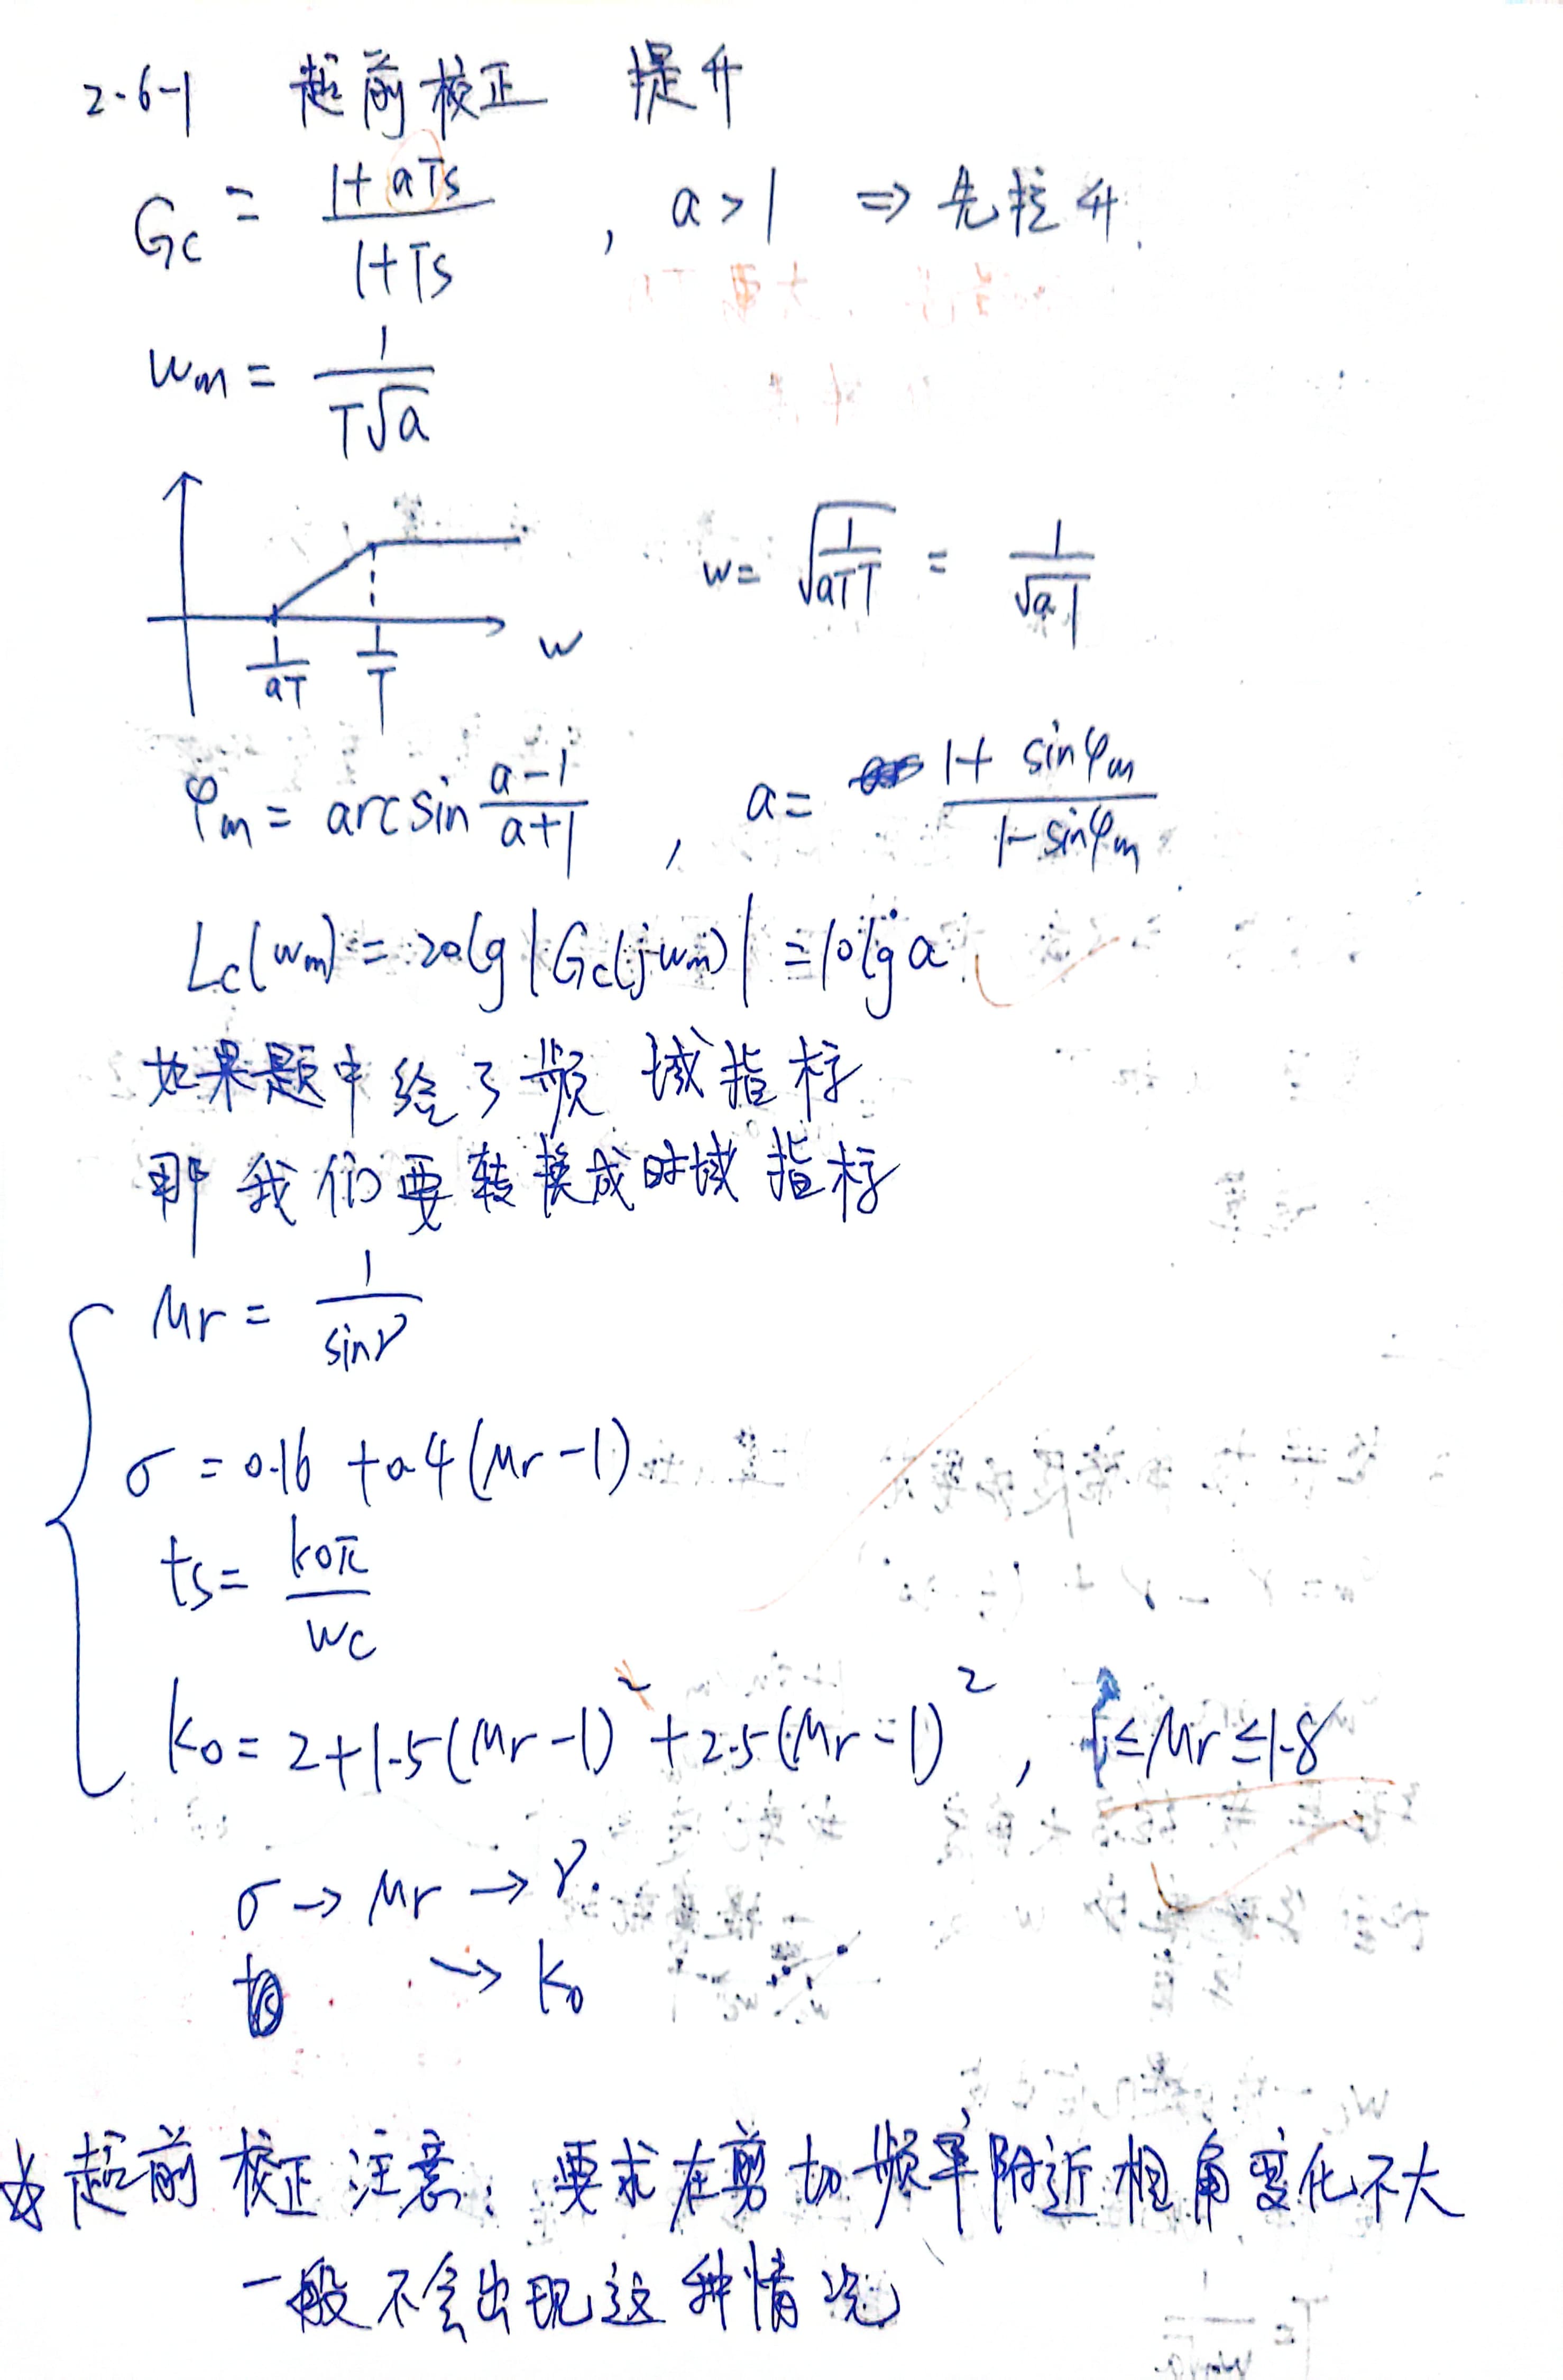 2.6-1 超前校正 提升
Gc = (1+aTs)/(1+Ts) , a>1 ⇒ 先拉升.
wm = 1/(T√a)
w
1/(aT) 1/T
w = √(1/(aTT)) = 1/(√a T)
φm = arcsin (a-1)/(a+1) , a = (1+sinφm)/(1-sinφm)
Lc(wm) = 20lg|Gc(jwm)| = 10lg a
如果题中给了频域指标
那我们要转换成时域指标
Mr = 1/sinγ
σ = 0.16 + 0.4(Mr-1)
ts = k0π/wc
k0 = 2+1.5(Mr-1)²+2.5(Mr-1)² , 1≤Mr≤1.8
σ → Mr → γ.
→ k0
☆超前校正注意: 要求在剪切频率附近相角变化不大
一般不会出现这种情况